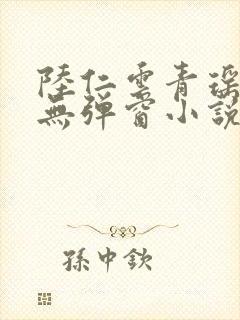 陸仁雲青瑶
無彈窗小說
孫中欽